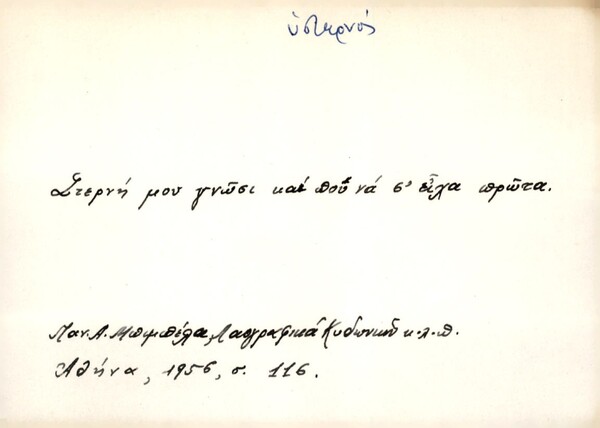 ὑστερνός
Στερνή μου γνῶσι καὶ ποῦ νά σ' εἶχα πρῶτα.
Παν. Α. Μπιμπέλα, Λαογραφικά Κυδωνιῶν κ.λ.π.
Ἀθήνα, 1956, σ. 116.